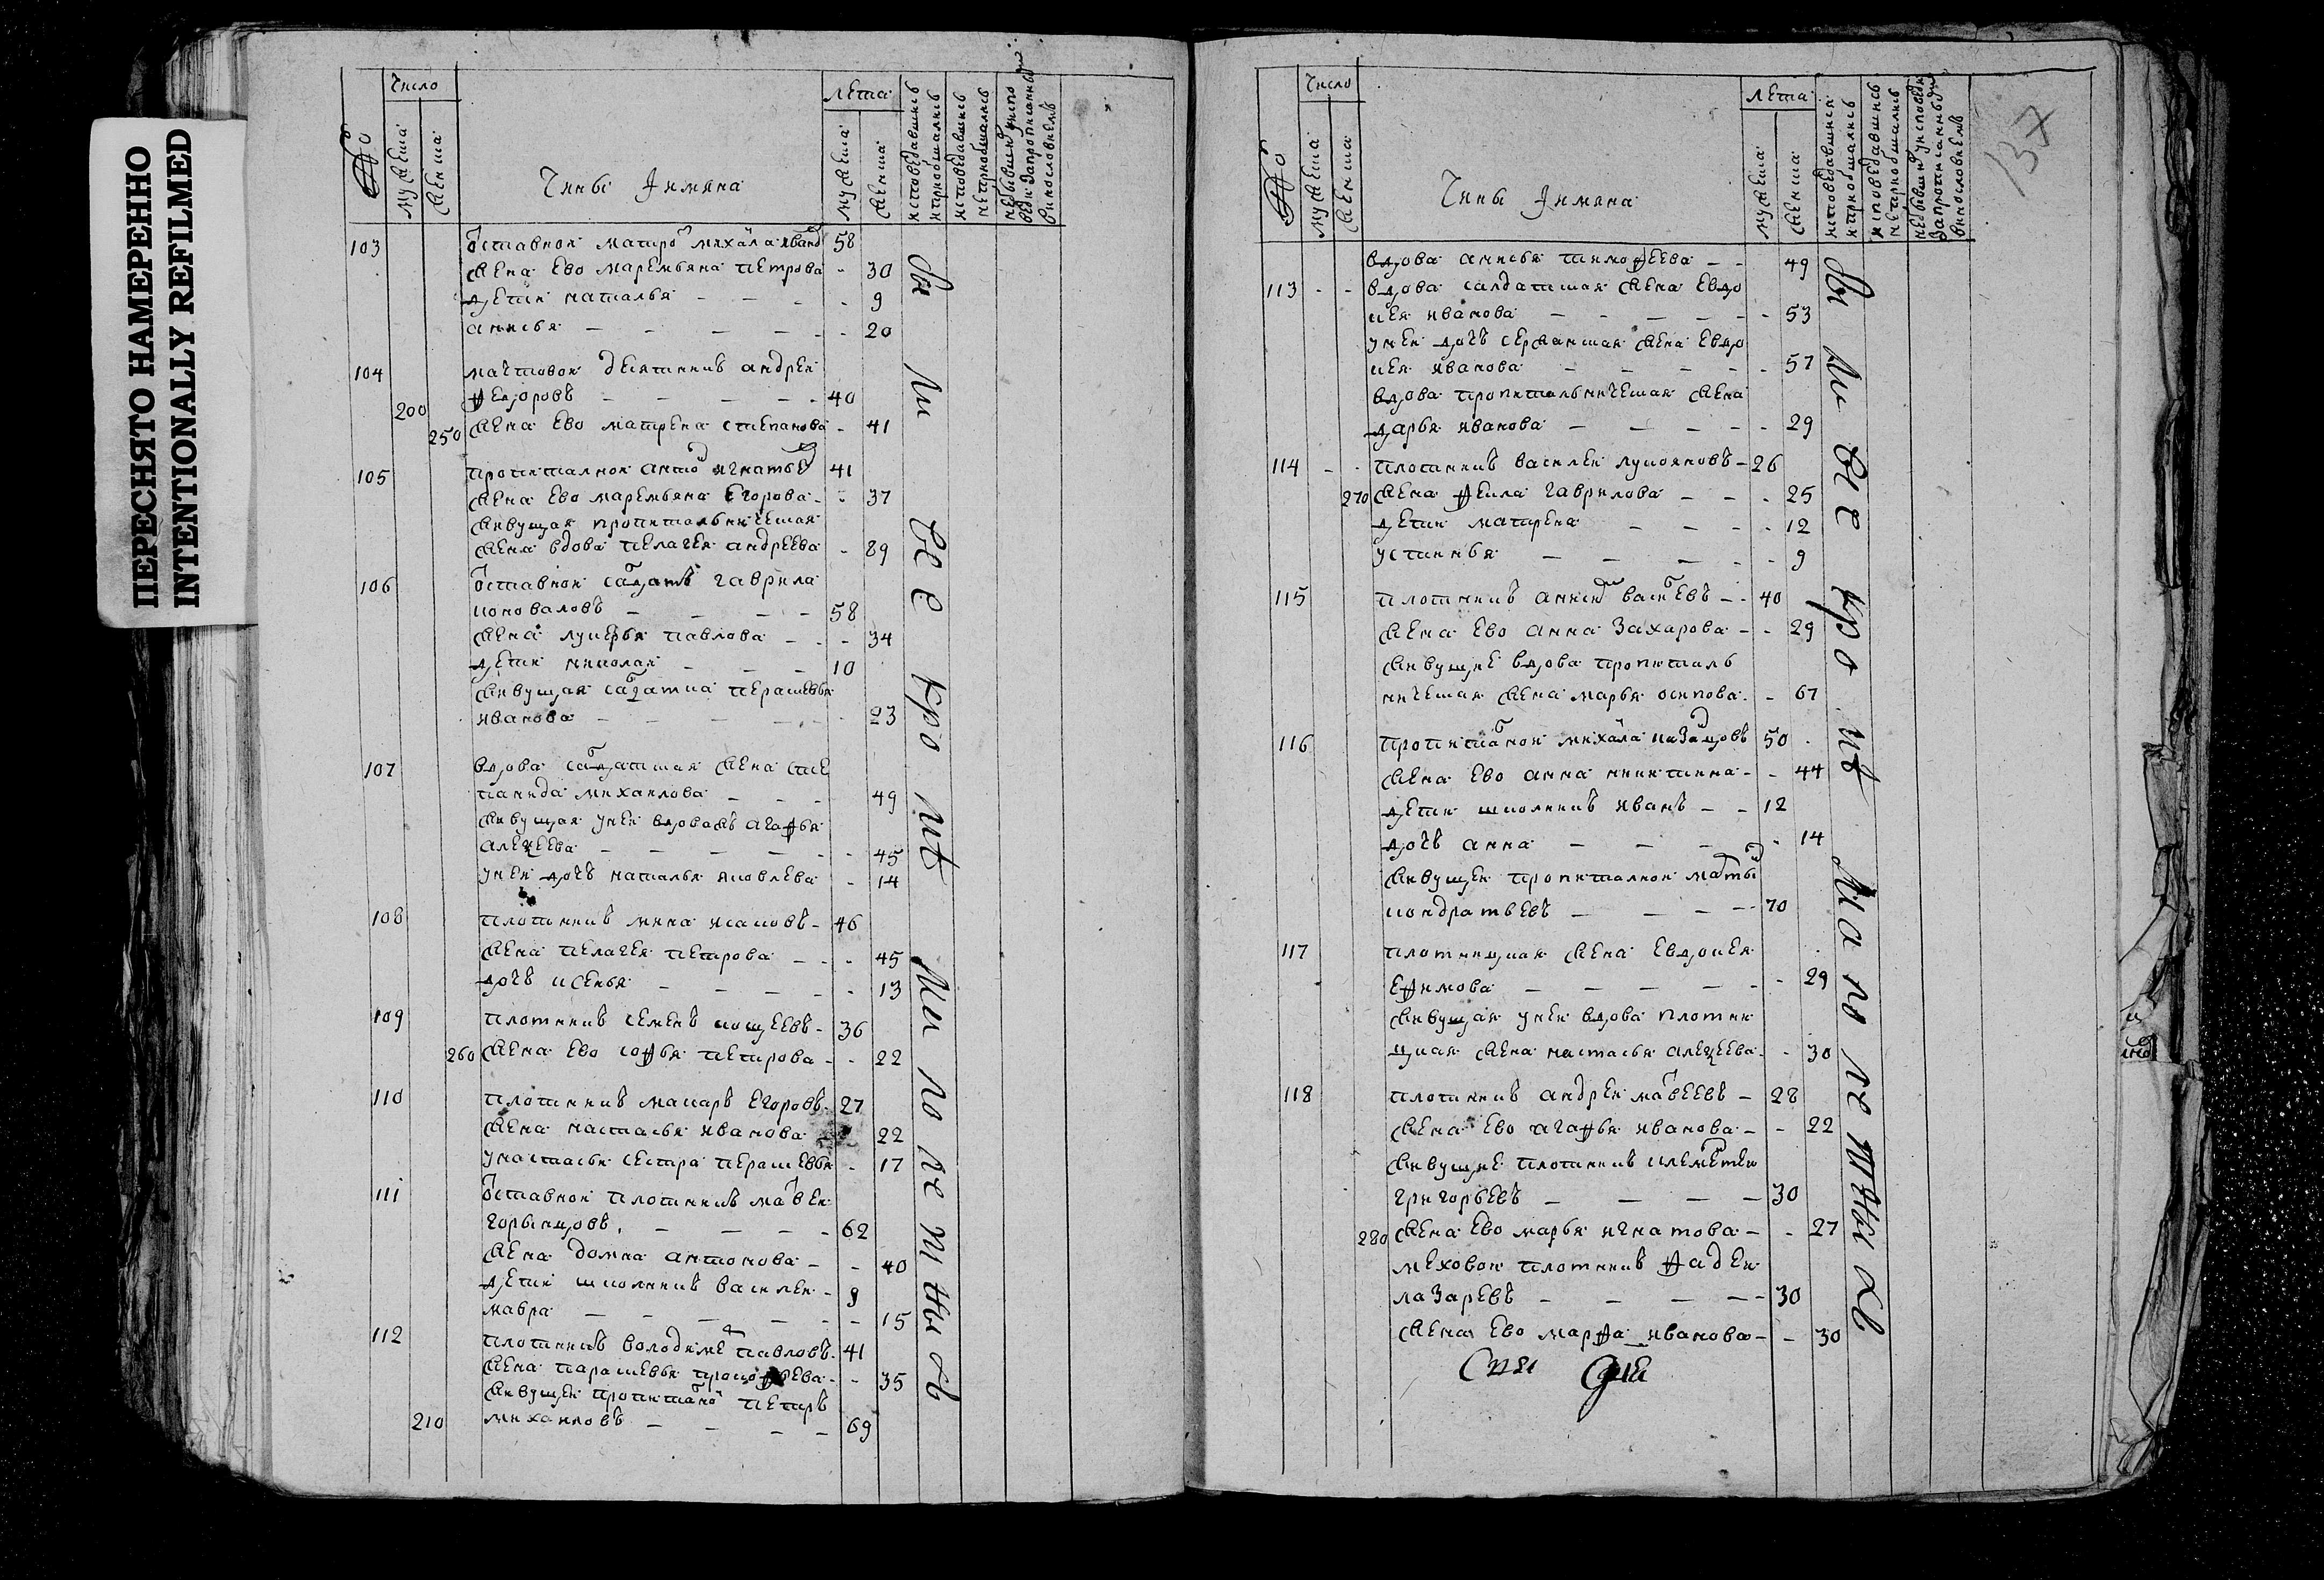 ПЕРЕСНЯТО НАМЕРЕННО
INTENTIONALLY REFILMED
Число
мужеска
женска
Чины и имяна
Лета
мужеска
женска
исповедавшихся
и приобщались
исповедавшись
не приобщались
103 отставной матро михайла ивано 58
жена ево маремьяна петрова - 30
дети наталья - - - - 9
анисья - - - - - 20
104 мачтовой десятникъ андрей
федоровъ - - - - 40
200
250 жена ево матрена степанова - 41
105 пропиталной анто игнатье 41
жена ево маремьяна егорова - - 37
живущая пропитальническая
жена вдова пелагея андреева - 89
106 отставной салдатъ гаврила
коноваловъ - - - - 58
жена лукерья павлова - - - 34
дети николай - - - 10
живущая салдатка парасковья
иванова - - - - - 23
107 вдова салдатская жена сте
панида михайлова - - - 49
живущая у ней вдова жъ агафья
алексеева - - - - - 45
у ней дочь наталья яковлева - 14
108 плотникъ мина исаковъ - 46
жена пелагея петрова - - - 45
дочь ксенья - - - - - 13
109 плотникъ семенъ кощеевъ - 36
260 жена ево софья петрова - - 22
110 плотникъ макаръ егоровъ - 27
жена настасья иванова - 22
у настасьи сестра парасковья - 17
111 отставной плотникъ мавей
горынцовъ - - - - 62
жена домна антонова - - 40
дети школникъ василей - 9
мавра - - - - - - 15
112 плотникъ володиме павловъ 41
жена парасковья прокофьева - - 35
живущей пропитано петръ
210 михаиловъ - - - - 69
вси
ли
все
кро
мѣ
мало
летныхъ
137
Число
мужеска
женска
Чины и имяна
Лета
мужеска
женска
исповедавшихся
и приобщались
исповедавшись
не приобщались
вдова анисья тимофеева - - 49
113 - - вдова салдатская жена евдо
кея иванова - - - - - 53
у ней дочь сержанская жена евдо
кея иванова - - - - - 57
вдова пропитальническая жена
дарья иванова - - - - - 29
114 - - плотникъ василей лукояновъ - 26
270 жена фекла гаврилова - - - 25
дети матрена - - - - 12
устинья - - - - - 9
115 плотникъ аники васильевъ - - 40
жена ево анна захарова - - 29
живущие вдова пропиталь
ническая жена марья осипова - - 67
116 пропиталной михайла казанцовъ 50
жена ево анна никитина - - 44
дети школникъ иванъ - - 12
дочь анна - - - - 14
живущей пропиталной
кондратьевъ - - - - 70
117 плотницкая жена евдокея
ефимова - - - - - - 29
живущая у ней вдова плотни
цкая жена настасья алексеева - - 30
118 плотникъ андрей мавеевъ - 28
жена ево агафья иванова - - 22
живущие плотникъ
григорьевъ - - - - 30
280 жена ево марья игнатова - - 27
меховой плотникъ фадей
лазаревъ - - - - - 30
жена ево марфа иванова - - 30
вси
ли
все
кро
мѣ
мало
летныхъ